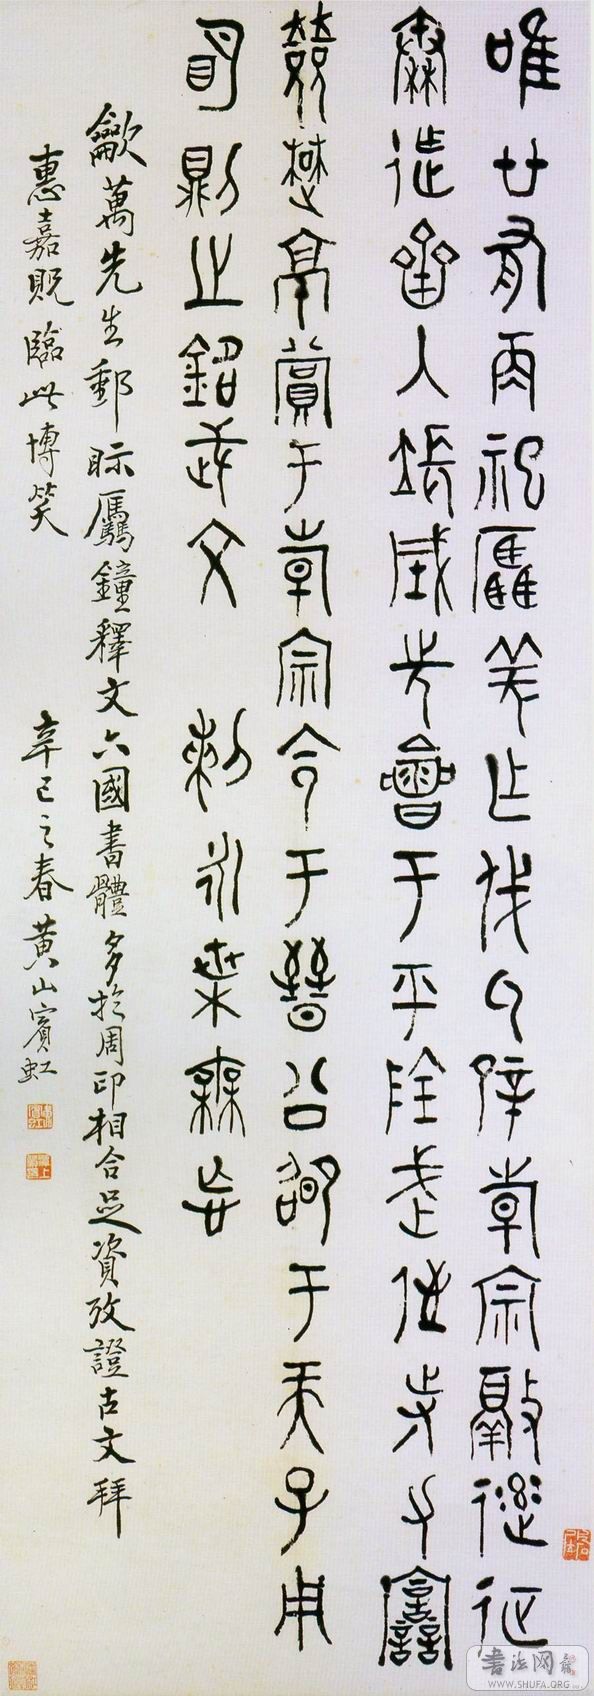 唯廿又再祀驫羌乍戎氒辟倝宗敲征
秦迮齊入張城先會于平陰武侄寺力
楚京賞于倝宗令于晉公卲于天子用
明則之銘武文 剌永枼
歗萬先生郵眎驫鐘釋文六國書體多於周印相合足資攷證古文拜
惠嘉貺臨此博笑 辛巳之春黃山賓虹
书法网
WWW.SHUFA.ORG